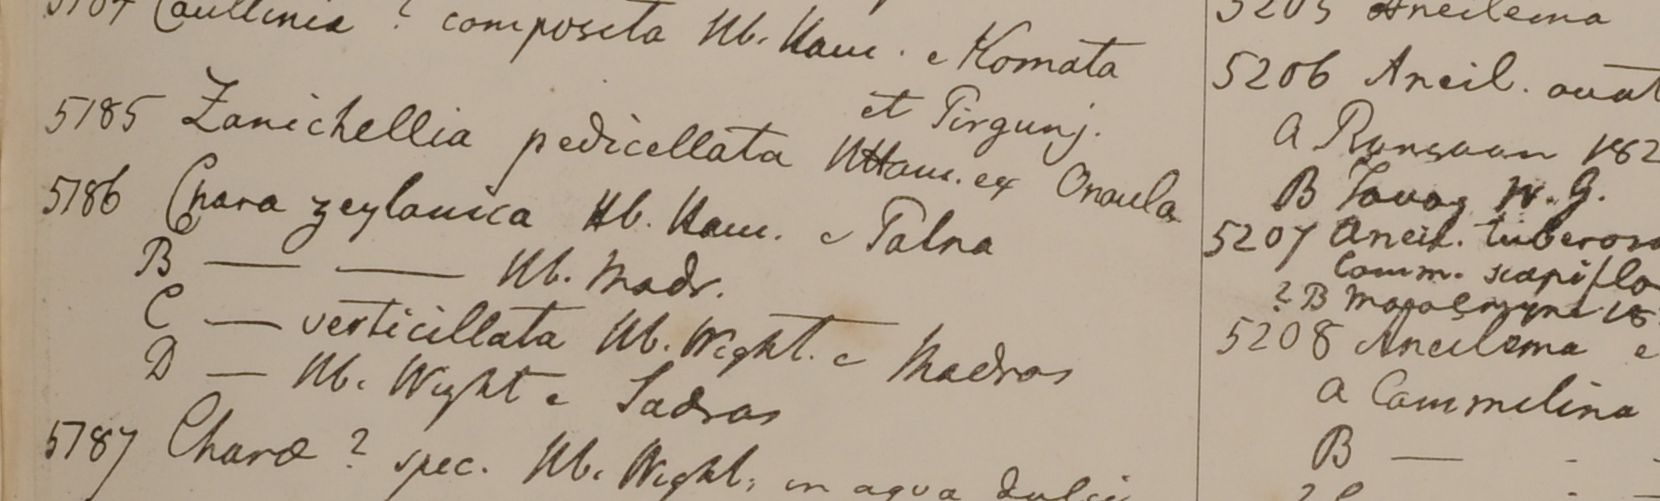 Caullinia ? composita Hb. Ham. e Komata
et Pirgunj.
5185 Zanichellia pedicellata HHam. ex
5186 Chara zeylanica Hb. Ham. e Patna
B — — Hb. Madr.
C — verticillata Hb. Wight. e Madras
D — Hb. Wight e Sadras
5187 Charæ ? spec. Hb. Wight, in aqua dulci
5205 Aneilema
5206 Aneil. ovat
a Rangoon 182
B Tavoy W. G.
5207 Aneil. tuberosa
Comm. scapiflo
? B
5208 Aneilema e
a Commelina
B —